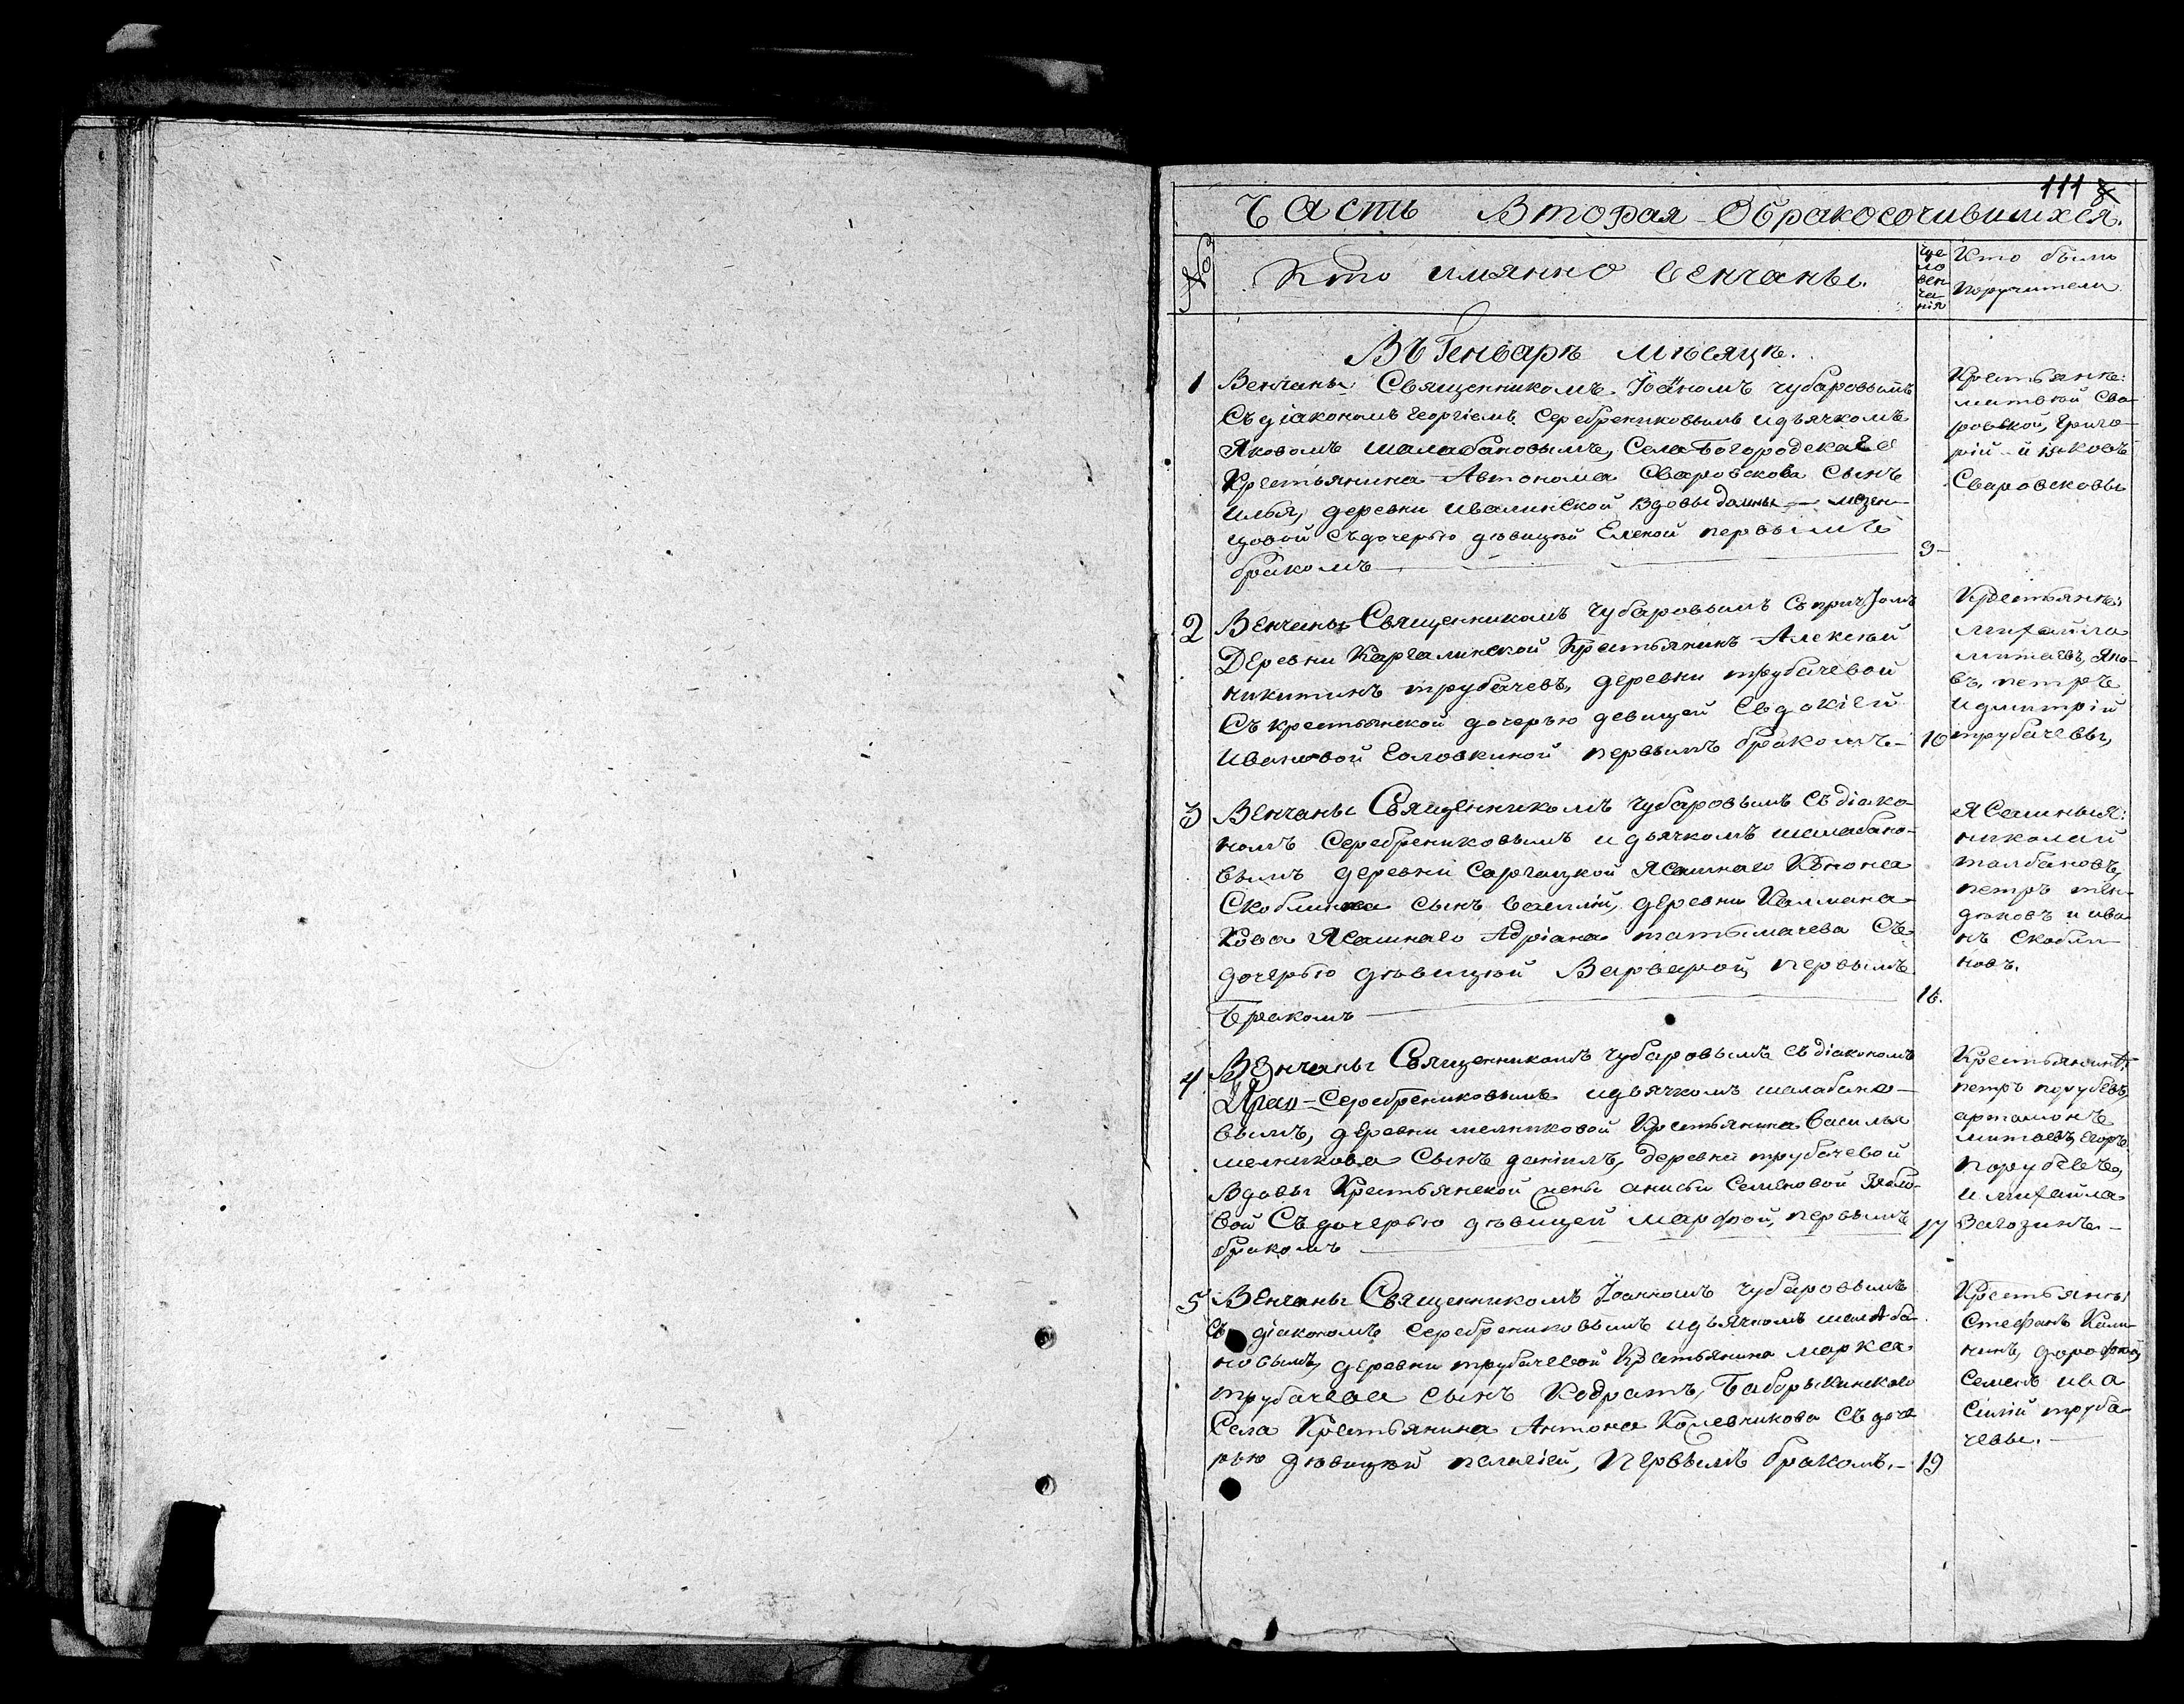 111
Часть Вторая Обракосочившихся.
№
Кто имянно венчаны.
чис
ло
вен
ча-
нія
Кто были
поручители
Въ Генварѣ мѣсяцѣ.
1 Венчаны Священникомъ Іоанномъ чубаровымъ
Съ діакономъ георгіемъ Серебрениковымъ идьячкомъ
Яковомъ шалабановымъ, Села Богородскаго
Крестьянина Автонома Сваровскова Сынъ
Илья, деревни ивалинской вдовы домны мезен-
цовой Съдочерью дѣвицѣй Еленой первымъ
бракомъ
9
Крестьянѣ:
Сва-
ровской, григо-
рій и яковъ
Сваровсковы
2 Венчаны Священникомъ Чубаровымъ Съ причтомъ
Деревни Каргалинской Крестьянинъ Алексѣй
никитинъ трубачевъ, деревни трубачевой
Съ крестьянской дочерью девицей Евдокіей
Ивановой Головкиной первымъ бракомъ
10
Крестьянѣ:
михайла
митаевъ, яко-
въ, петръ
идмитрій
трубачевы,
3 Венчаны Священникомъ Чубаровымъ Съ діако-
номъ Серебрениковымъ и дьячкомъ шалабано-
вымъ деревни Саргацкой Ясашнаго Конона
Скоблина сынъ василій, деревни Калмана-
кова Ясашнаго Адріана татымачева Съ
дочерью дѣвицѣй Варварой первымъ
Бракомъ
16.
Ясашныя:
николай
талбановъ,
петръ тен-
дюковъ и ива
нъ Скобли-
новъ.
4 Венчаны Священникомъ Чубаровымъ съ діакономъ
Серебрениковымъ идьячкомъ шалабано-
вымъ, деревни мелниковой Крестьянина василья
мелникова Сынъ даніилъ, деревни трубачевой
Вдовы Крестьянской жены анисьи Семеновой
вой Съ дочерью дѣвицей марфой, первымъ
бракомъ
17
Крестьянинъ
петръ порубевъ,
артамонъ
митаевъ, егоръ
порубевъ,
и михайла
Вагозинъ
5 Венчаны Священникомъ Іоанномъ Чубаровымъ
Съ діакономъ серебрениковымъ идьячкомъ шалаба-
новымъ, деревни трубачевой Крестьянина марка
трубачева сынъ Кодратъ, Баборыкинского
Села Крестьянина Антона Кожевникова Съ доче
рью дѣвицѣй пелагіей, первымъ бракомъ.
19
Крестьяны
Стефанъ Кали-
нинъ, дорофѣй,
Семенъ ива
силій труба-
чевы.